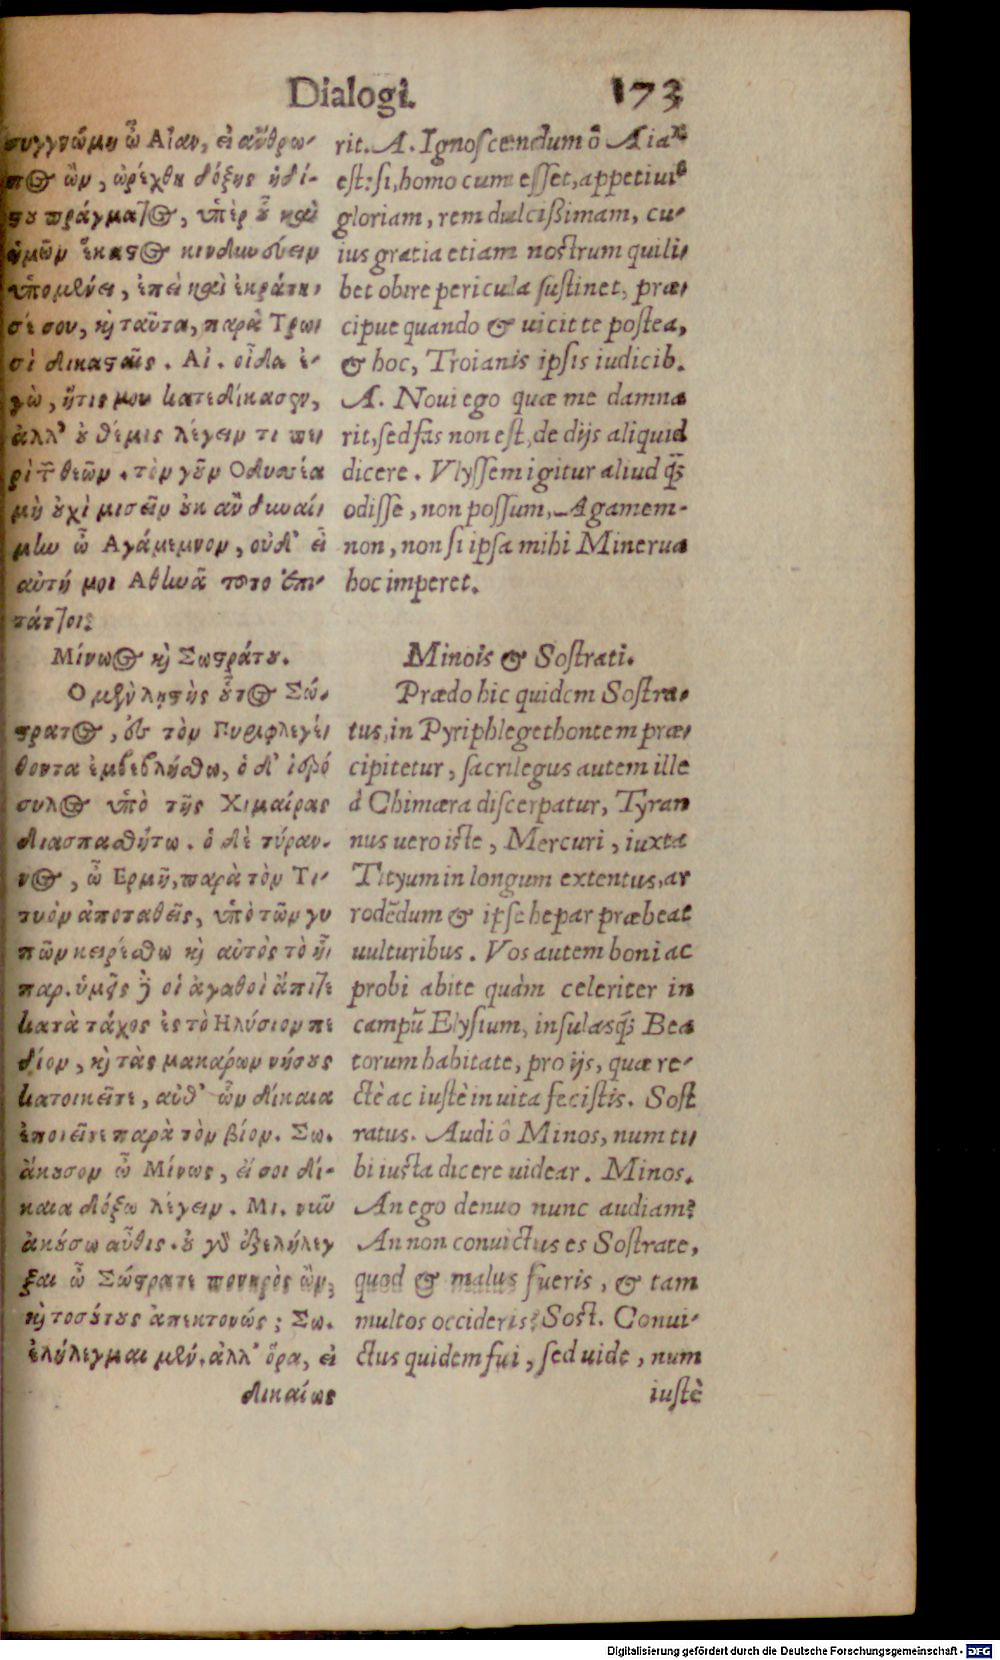 Dialogi. 173
συγγνώμη ὦ Αἶαν, εἰ ἄνθρω-
πος ὢν, ὠρέχθη δόξης ἡδί-
στου πράγματος, ὑπὲρ οὗ καὶ
ἡμῶν ἕκαστος κινδυνεύειν
ὑπομένει, ἐπεὶ καὶ ἐκράτη-
σέ σου, καὶ ταῦτα, παρὰ Τρω-
σὶ δικασταῖς. Αἰ. οἶδα ἐ-
γὼ, ἥτις μου κατεδίκασεν,
ἀλλ' οὐ θέμις λέγειν τι πε-
ρὶ τῶν θεῶν. τὸν γοῦν Ὀδυσσέα
μὴ οὐχὶ μισεῖν οὐκ ἂν δυναί-
μην ὦ Ἀγάμεμνον, οὐδ' εἰ
αὐτή μοι Ἀθηνᾶ τοῦτο ἐπι-
τάττοι.
Μίνωος καὶ Σωστράτου.
Ὁ μὲν λῃστὴς οὗτος Σώ-
στρατος, ἐς τὸν Πυριφλεγέ-
θοντα ἐμβεβλήσθω, ὁ δ' ἱερό
συλος ὑπὸ τῆς Χιμαίρας
διασπασθήτω. ὁ δὲ τύραν-
νος, ὦ Ἑρμῆ, παρὰ τὸν Τι-
τυὸν ἀποταθεὶς, ὑπὸ τῶν γυ
πῶν κειρέσθω καὶ αὐτὸς τὸ ἧ-
παρ. ὑμεῖς δὲ οἱ ἀγαθοὶ ἄπιτε
κατὰ τάχος ἐς τὸ Ἠλύσιον πε
δίον, καὶ τὰς μακάρων νήσους
κατοικεῖτε, ἀνθ' ὧν δίκαια
ἐποιεῖτε παρὰ τὸν βίον. Σω.
ἄκουσον ὦ Μίνως, εἴ σοι δί-
καια δόξω λέγειν. Μι. νῦν
ἀκούσω αὖθις. οὐ γὰρ ἐξελήλεγ
ξαι ὦ Σώστρατε πονηρὸς ὢν,
καὶ τοσούτους ἀπεκτονώς; Σω.
ἐλήλεγμαι μέν. ἀλλ' ὅρα, εἰ
δικαίως
rit. A. Ignoscendum ô Aiax
est: si, homo cum esset, appetiuit
gloriam, rem dulcißimam, cu-
ius gratia etiam nostrum quili-
bet obire pericula sustinet, præ-
cipue quando & uicit te postea,
& hoc, Troianis ipsis iudicib.
A. Noui ego quæ me damna
rit, sed fas non est, de dijs aliquid
dicere. Vlyssem igitur aliud q̃;
odisse, non possum, Agamem-
non, non si ipsa mihi Minerua
hoc imperet.
Minois & Sostrati.
Prædo hic quidem Sostra-
tus, in Pyriphlegethontem præ-
cipitetur, sacrilegus autem ille
à Chimæra discerpatur, Tyran
nus uero iste, Mercuri, iuxta
Tityum in longum extentus, ar
rodẽdum & ipse hepar præbeat
uulturibus. Vos autem boni ac
probi abite quàm celeriter in
campũ Elysium, insulasq̃; Bea
torum habitate, pro ijs, quæ re-
ctè ac iustè in uita fecistis. Sost
ratus. Audi ô Minos, num ti-
bi iusta dicere uidear. Minos.
An ego denuo nunc audiam?
An non conuictus es Sostrate,
quod & malus fueris, & tam
multos occideris? Sost. Conui-
ctus quidem fui, sed uide, num
iustè
Digitalisierung gefördert durch die Deutsche Forschungsgemeinschaft - DFG